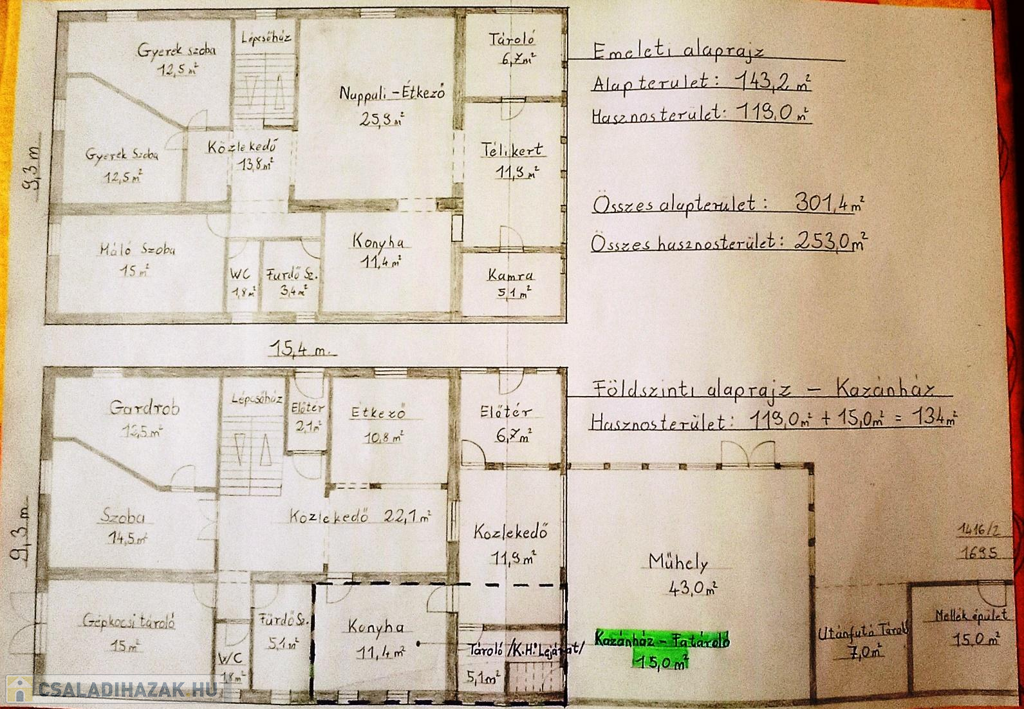 Gyerek szoba
12,5 m²
Lépcsőház
Nappali - Étkező
25,9 m²
Tároló
6,7 m²
Gyerek Szoba
12,5 m²
Közlekedő
13,8 m²
Télikert
11,9 m²
Háló Szoba
15 m²
WC
1,8 m²
Fürdő Sz.
3,4 m²
Konyha
11,4 m²
Kamra
5,1 m²
9,3 m
15,4 m.
Emeleti alaprajz
Alapterület: 143,2 m²
Hasznosterület: 119,0 m²
Összes alapterület: 301,4 m²
Összes hasznosterület: 253,0 m²
Földszinti alaprajz - Kazánház
Hasznosterület: 119,0 m² + 15,0 m² = 134 m²
Gardrob
12,5 m²
Lépcsőház
Előtér
2,1 m²
Étkező
10,8 m²
Előtér
6,7 m²
Szoba
14,5 m²
Közlekedő 22,1 m²
Közlekedő
11,9 m²
Műhely
43,0 m²
1416/2
1695
9,3 m
Gépkocsi tároló
15 m²
WC
1,8 m²
Fürdő Sz.
5,1 m²
Konyha
11,4 m²
Tároló /K.H. Lejárat/
5,1 m²
Kazánház - Fatároló
15,0 m²
Utánfutó Tároló
7,0 m²
Mellék épület
15,0 m²
CSALADIHAZAK.HU